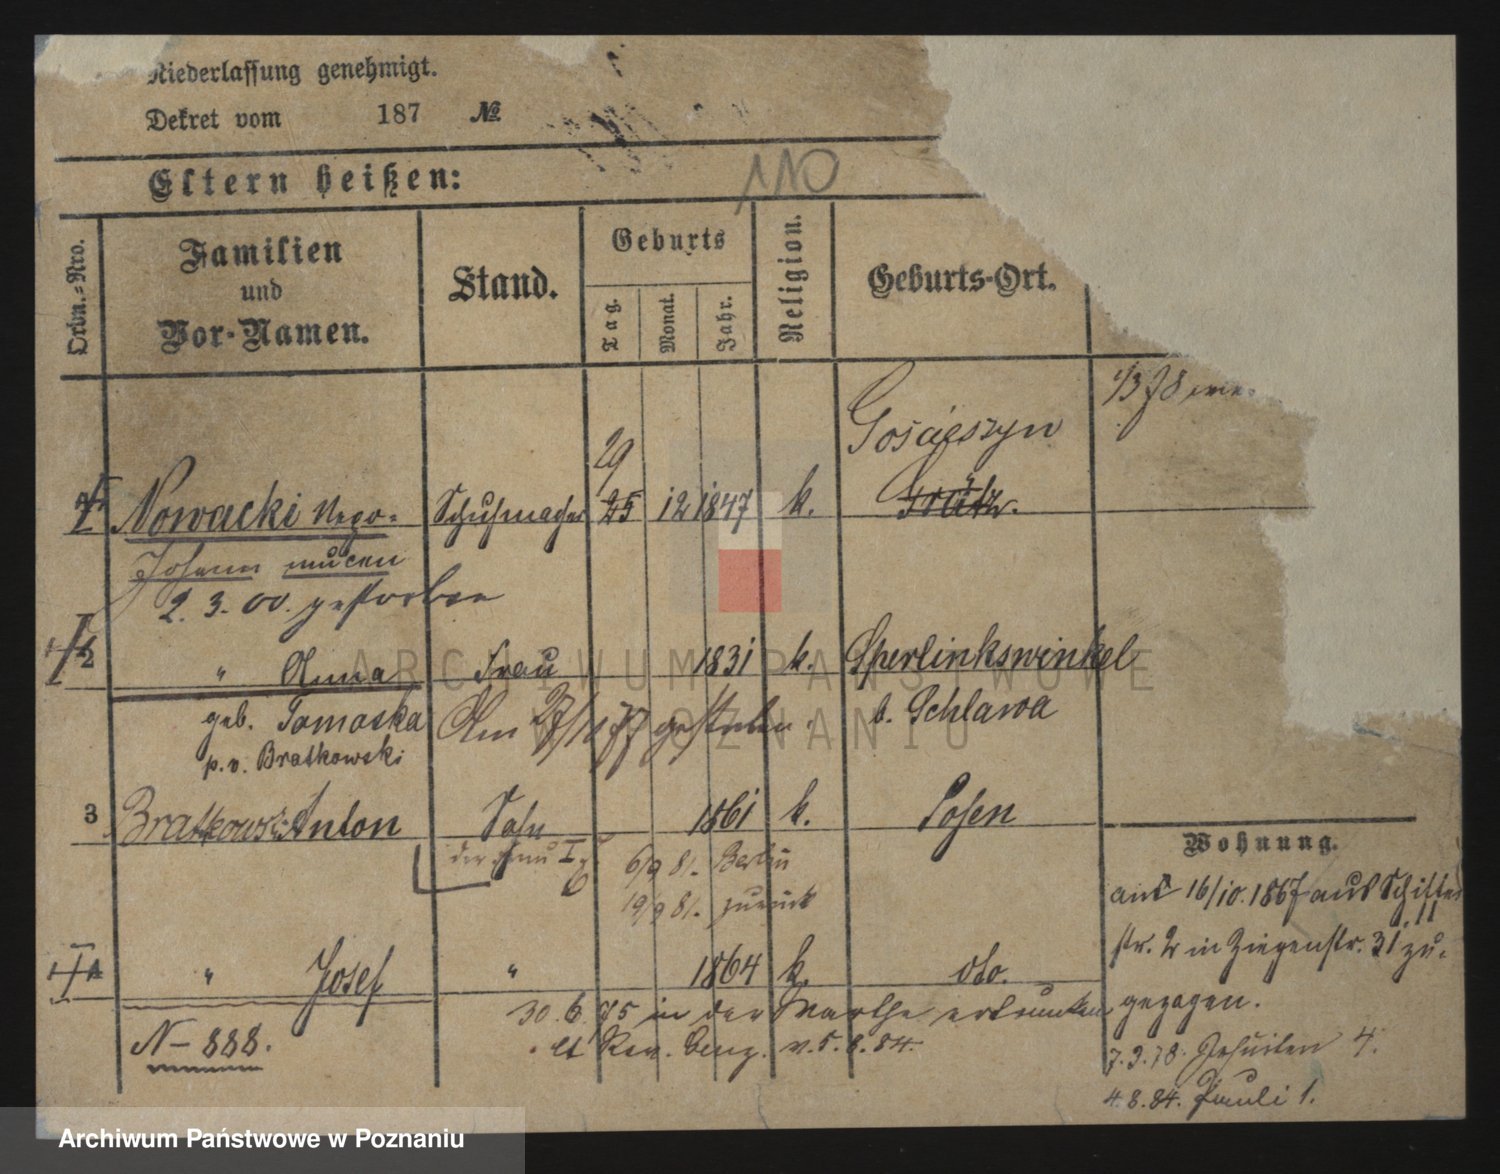 Niederlassung genehmigt.
Dekret vom 187 №
Eltern heißen:
110
Ordn.-Nro.
Familien und Vor-Namen.
Stand.
Geburts
Tag.
Monat.
Jahr.
Religion.
Geburts-Ort.
1/3 78
Gościeszyn
29
Nowacki Nepo- Schuhmacher 25 12 1847 k. Grätz.
Johann mucen
2. 3. 00. gestorben
2 " Anna Frau 1831 k. Sperlinkswinkel
geb. Tomaska Am gestorben. b. Schlawa
p. v. Bratkowski
3 Bratkowski Anton Sohn 1861 k. Posen
der Frau 6/9 81. Berlin
19/9 81. zurück
" Josef " 1864 k. dto.
30. 6. 75 in der Warthe ertrunken
lt Rev. v. 5. 8. 84.
N- 888.
Wohnung.
16/10. 1867 aus
str. 2 in Ziegenstr. 31 zu-
gezogen.
7. 3. 78. Jesuiten 4.
4. 8. 84. Pauli 1.
ARCHIWUM PAŃSTWOWE
W POZNANIU
Archiwum Państwowe w Poznaniu